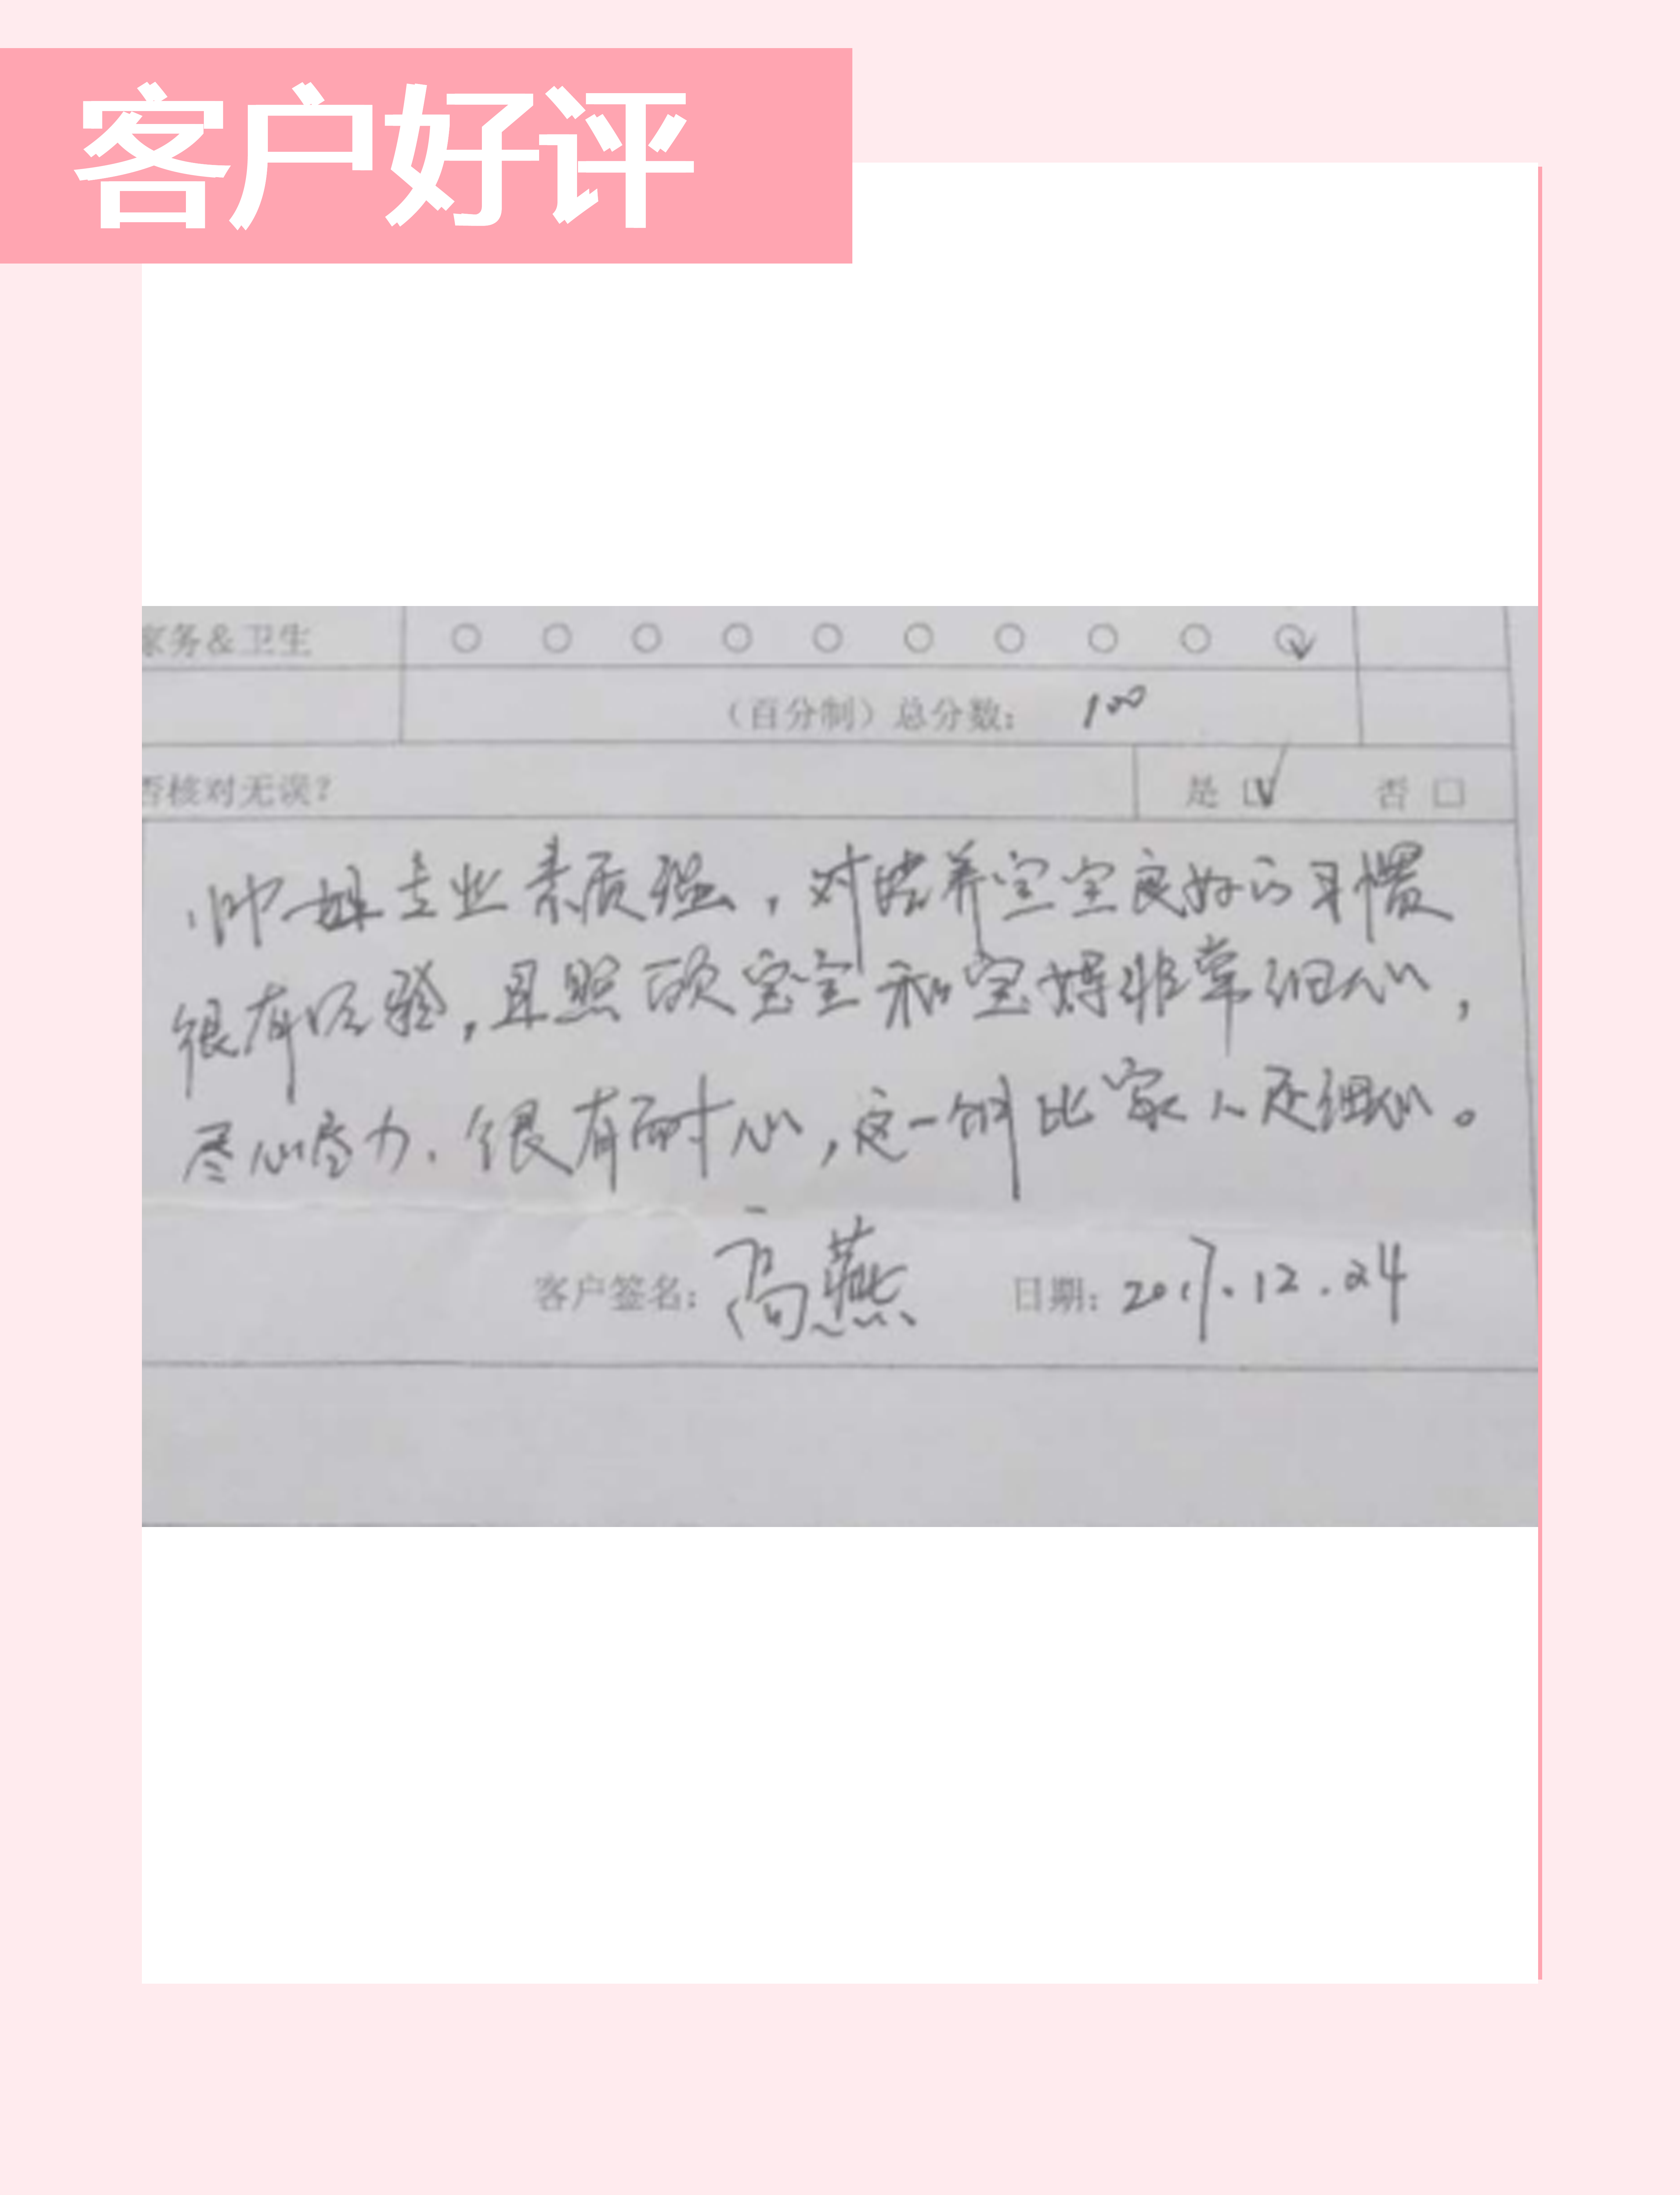 客户好评
家务&卫生
（百分制）总分数： 100
否核对无误？ 是 否
帅姐专业素质强，对培养宝宝良好的习惯
很有经验，且照顾宝宝和宝妈非常细心，
尽心尽力．很有耐心，这一例比家人还细心。
客户签名：高燕 日期：2017.12.24